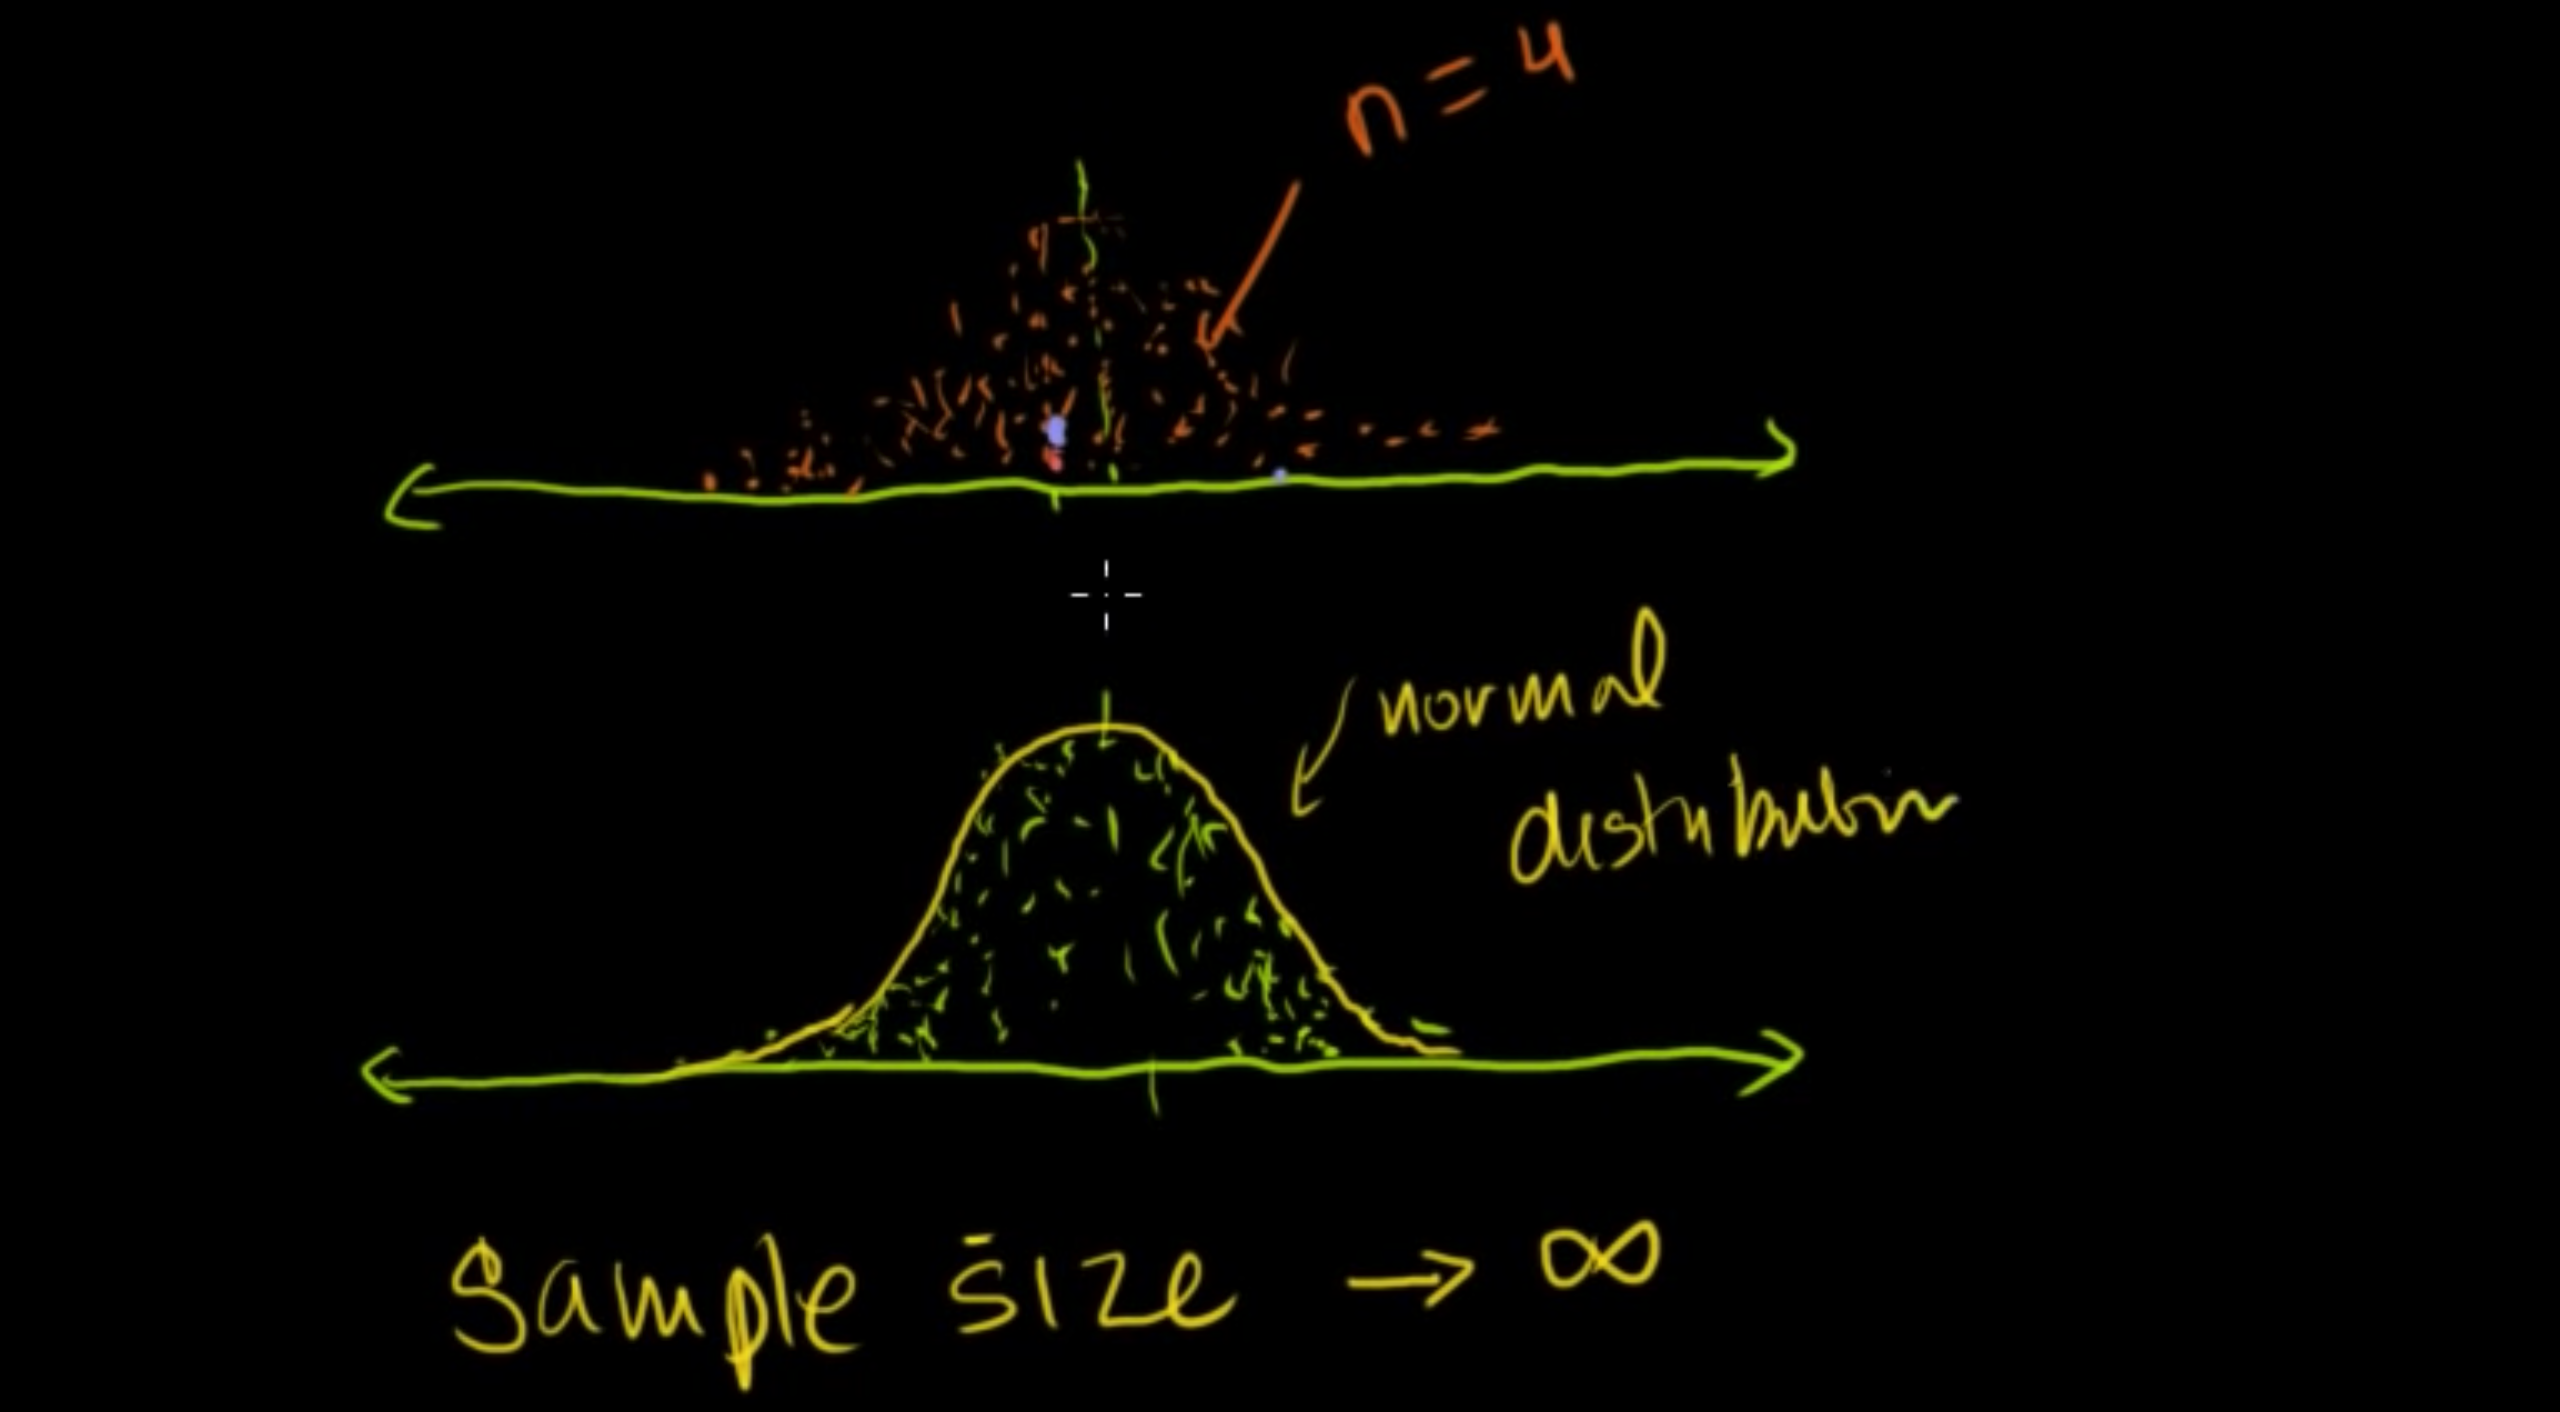 n = 4
normal
distribution
Sample size → ∞